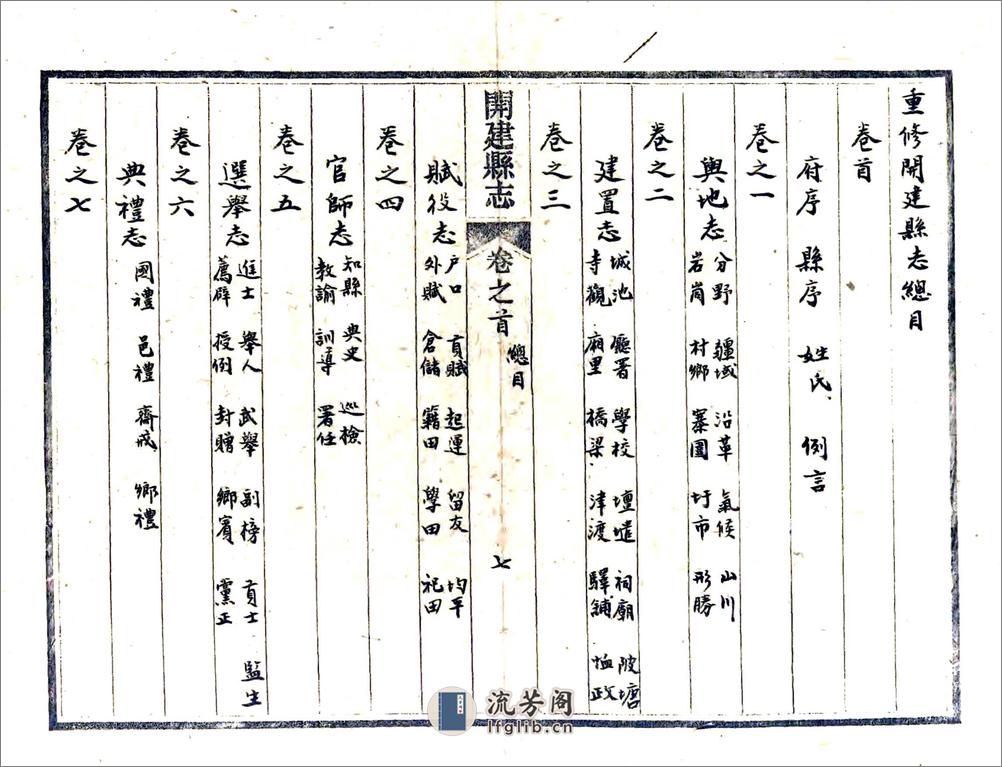 重修開建縣志總目
卷首
府序 縣序 姓氏 例言
卷之一
輿地志 分野 疆域 沿革 氣候 山川
岩崗 村鄉 寨圍 圩市 形勝
卷之二
建置志 城池 廳署 學校 壇壝 祠廟 陂塘
寺觀 廟里 橋梁 津渡 驛鋪 恤政
卷之三
開建縣志 卷之首 總目 七
賦役志 户口 貢賦 起運 留支 均平
外賦 倉儲 籍田 學田 祀田
卷之四
官師志 知縣 典史 巡檢
教諭 訓導 署任
卷之五
選舉志 進士 舉人 武舉 副榜 貢士 監生
薦辟 授例 封贈 鄉賓 黨正
卷之六
典禮志 國禮 邑禮 齋戒 鄉禮
卷之七
流芳阁
lfglib.cn